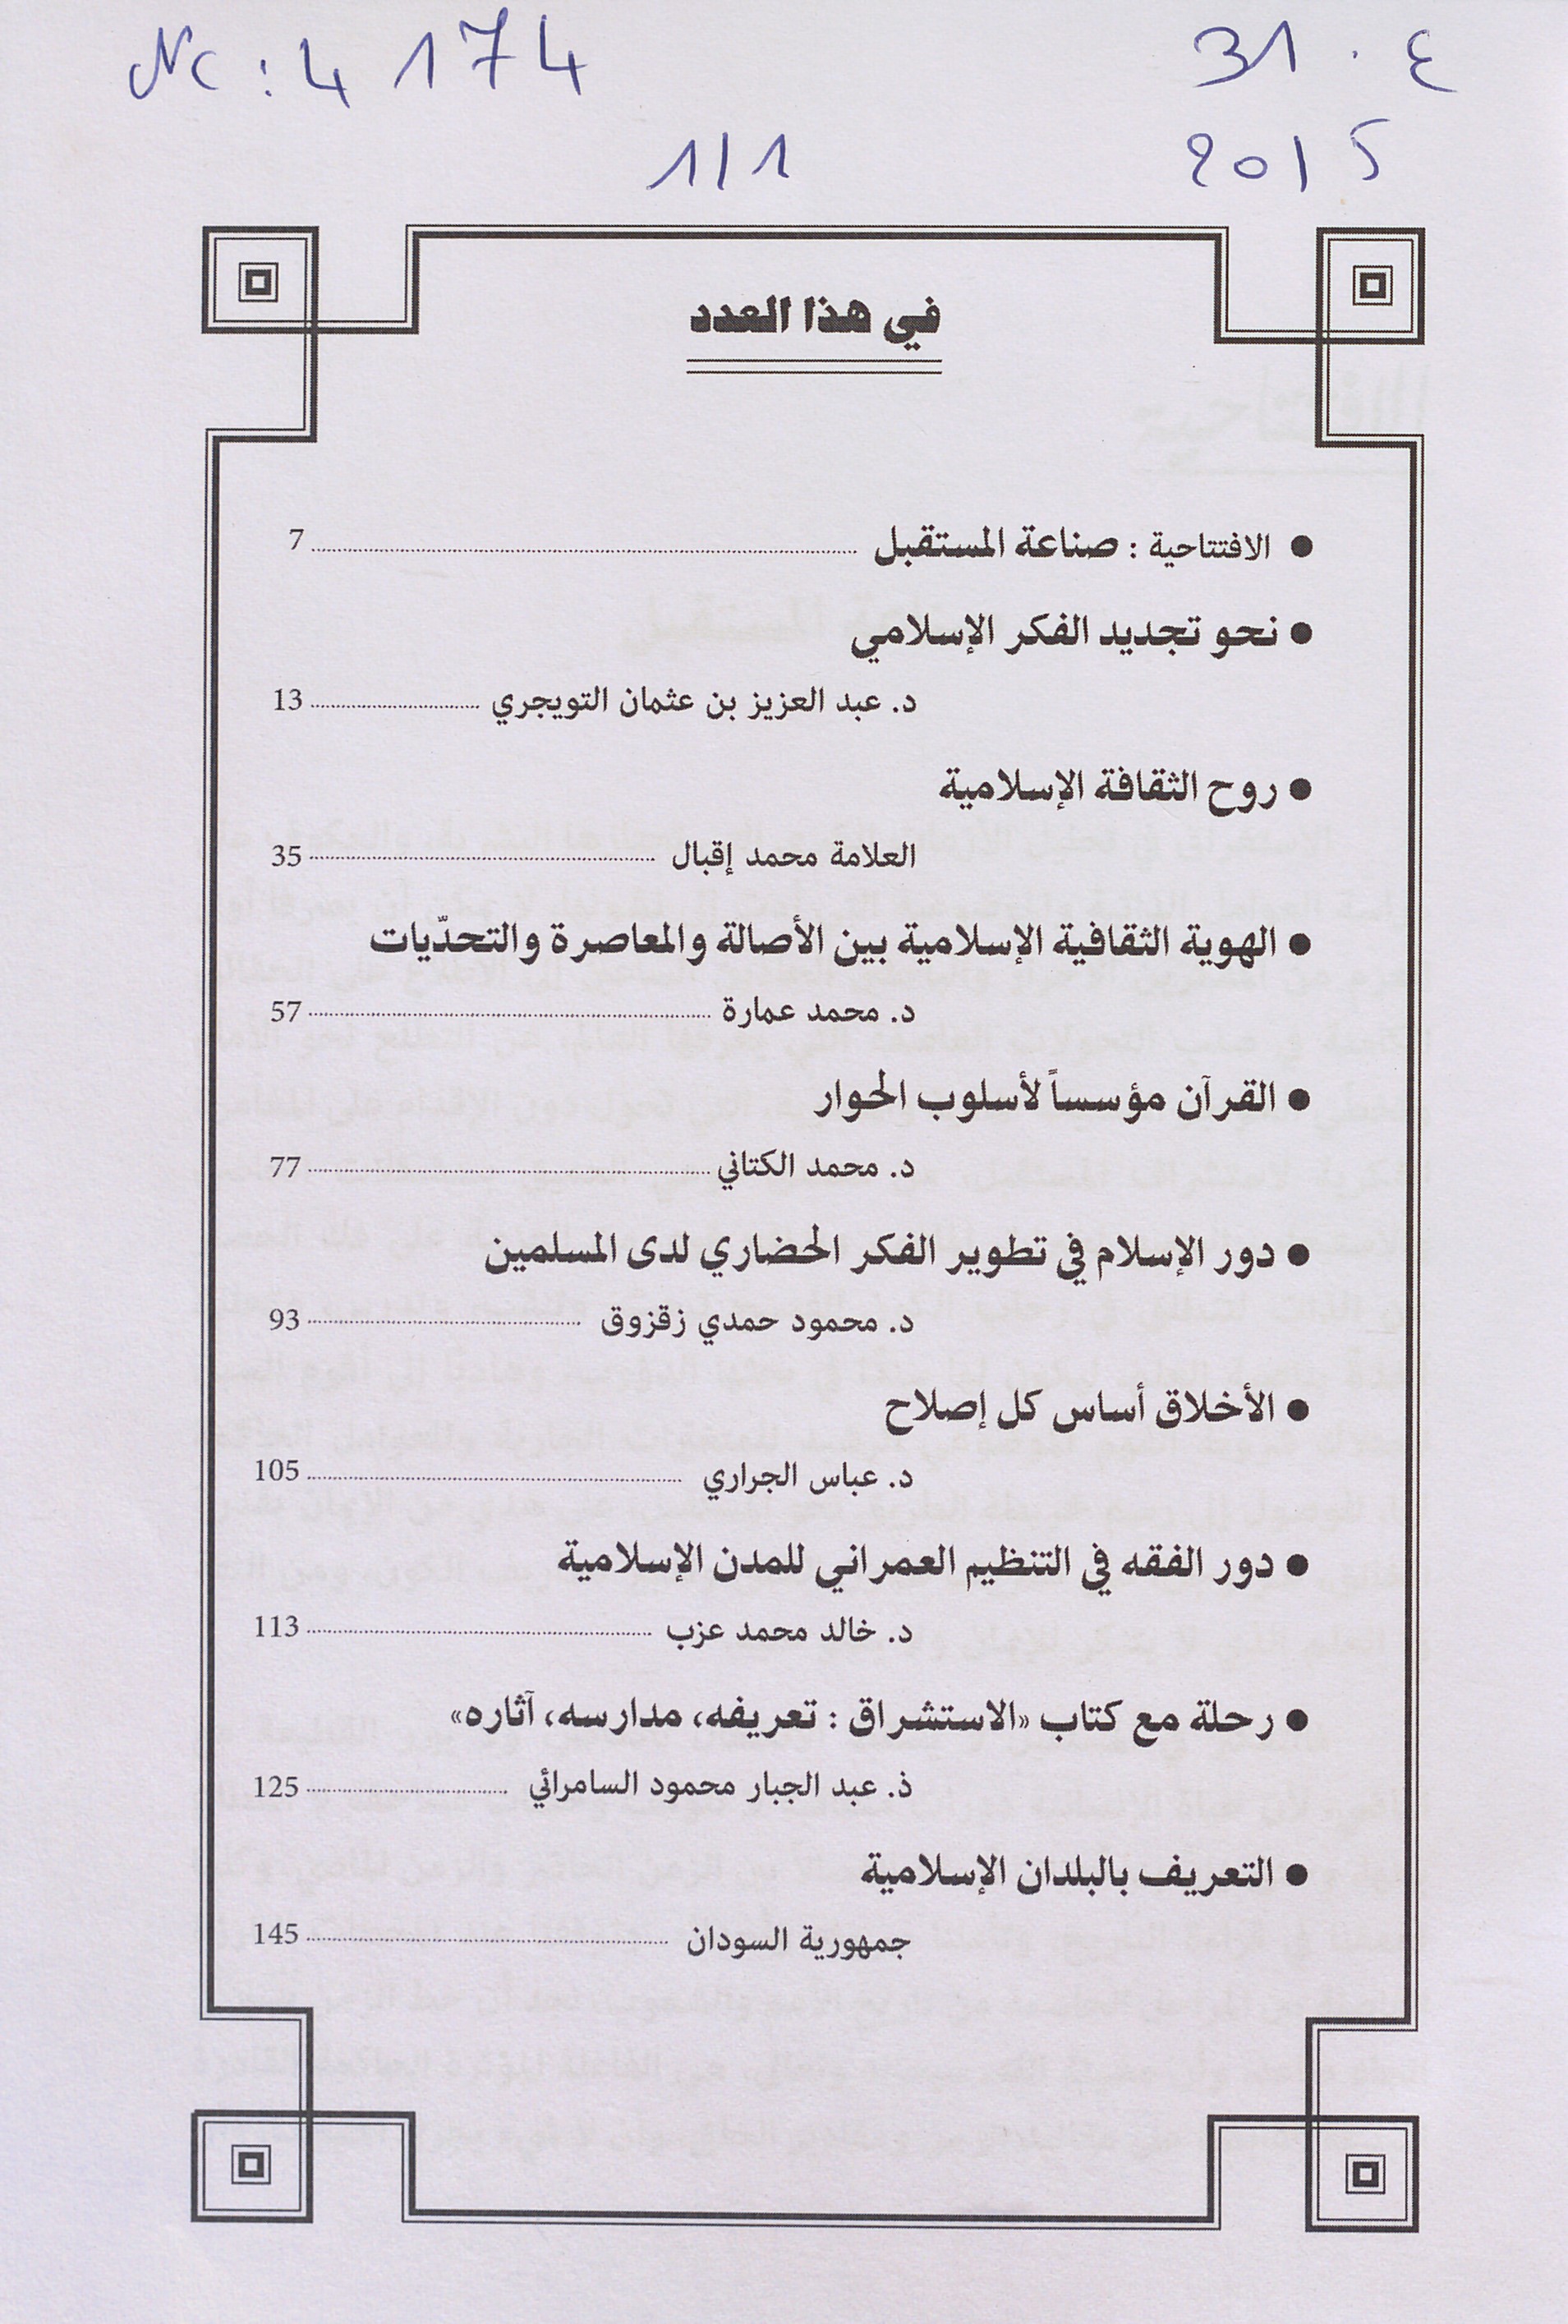 Nc : 4 174
31 . ع
1/1
2015
في هذا العدد
● الافتتاحية : صناعة المستقبل 7
● نحو تجديد الفكر الإسلامي
د. عبد العزيز بن عثمان التويجري 13
● روح الثقافة الإسلامية
العلامة محمد إقبال 35
● الهوية الثقافية الإسلامية بين الأصالة والمعاصرة والتحدّيات
د. محمد عمارة 57
● القرآن مؤسساً لأسلوب الحوار
د. محمد الكتاني 77
● دور الإسلام في تطوير الفكر الحضاري لدى المسلمين
د. محمود حمدي زقزوق 93
● الأخلاق أساس كل إصلاح
د. عباس الجراري 105
● دور الفقه في التنظيم العمراني للمدن الإسلامية
د. خالد محمد عزب 113
● رحلة مع كتاب «الاستشراق : تعريفه، مدارسه، آثاره»
ذ. عبد الجبار محمود السامرائي 125
● التعريف بالبلدان الإسلامية
جمهورية السودان 145